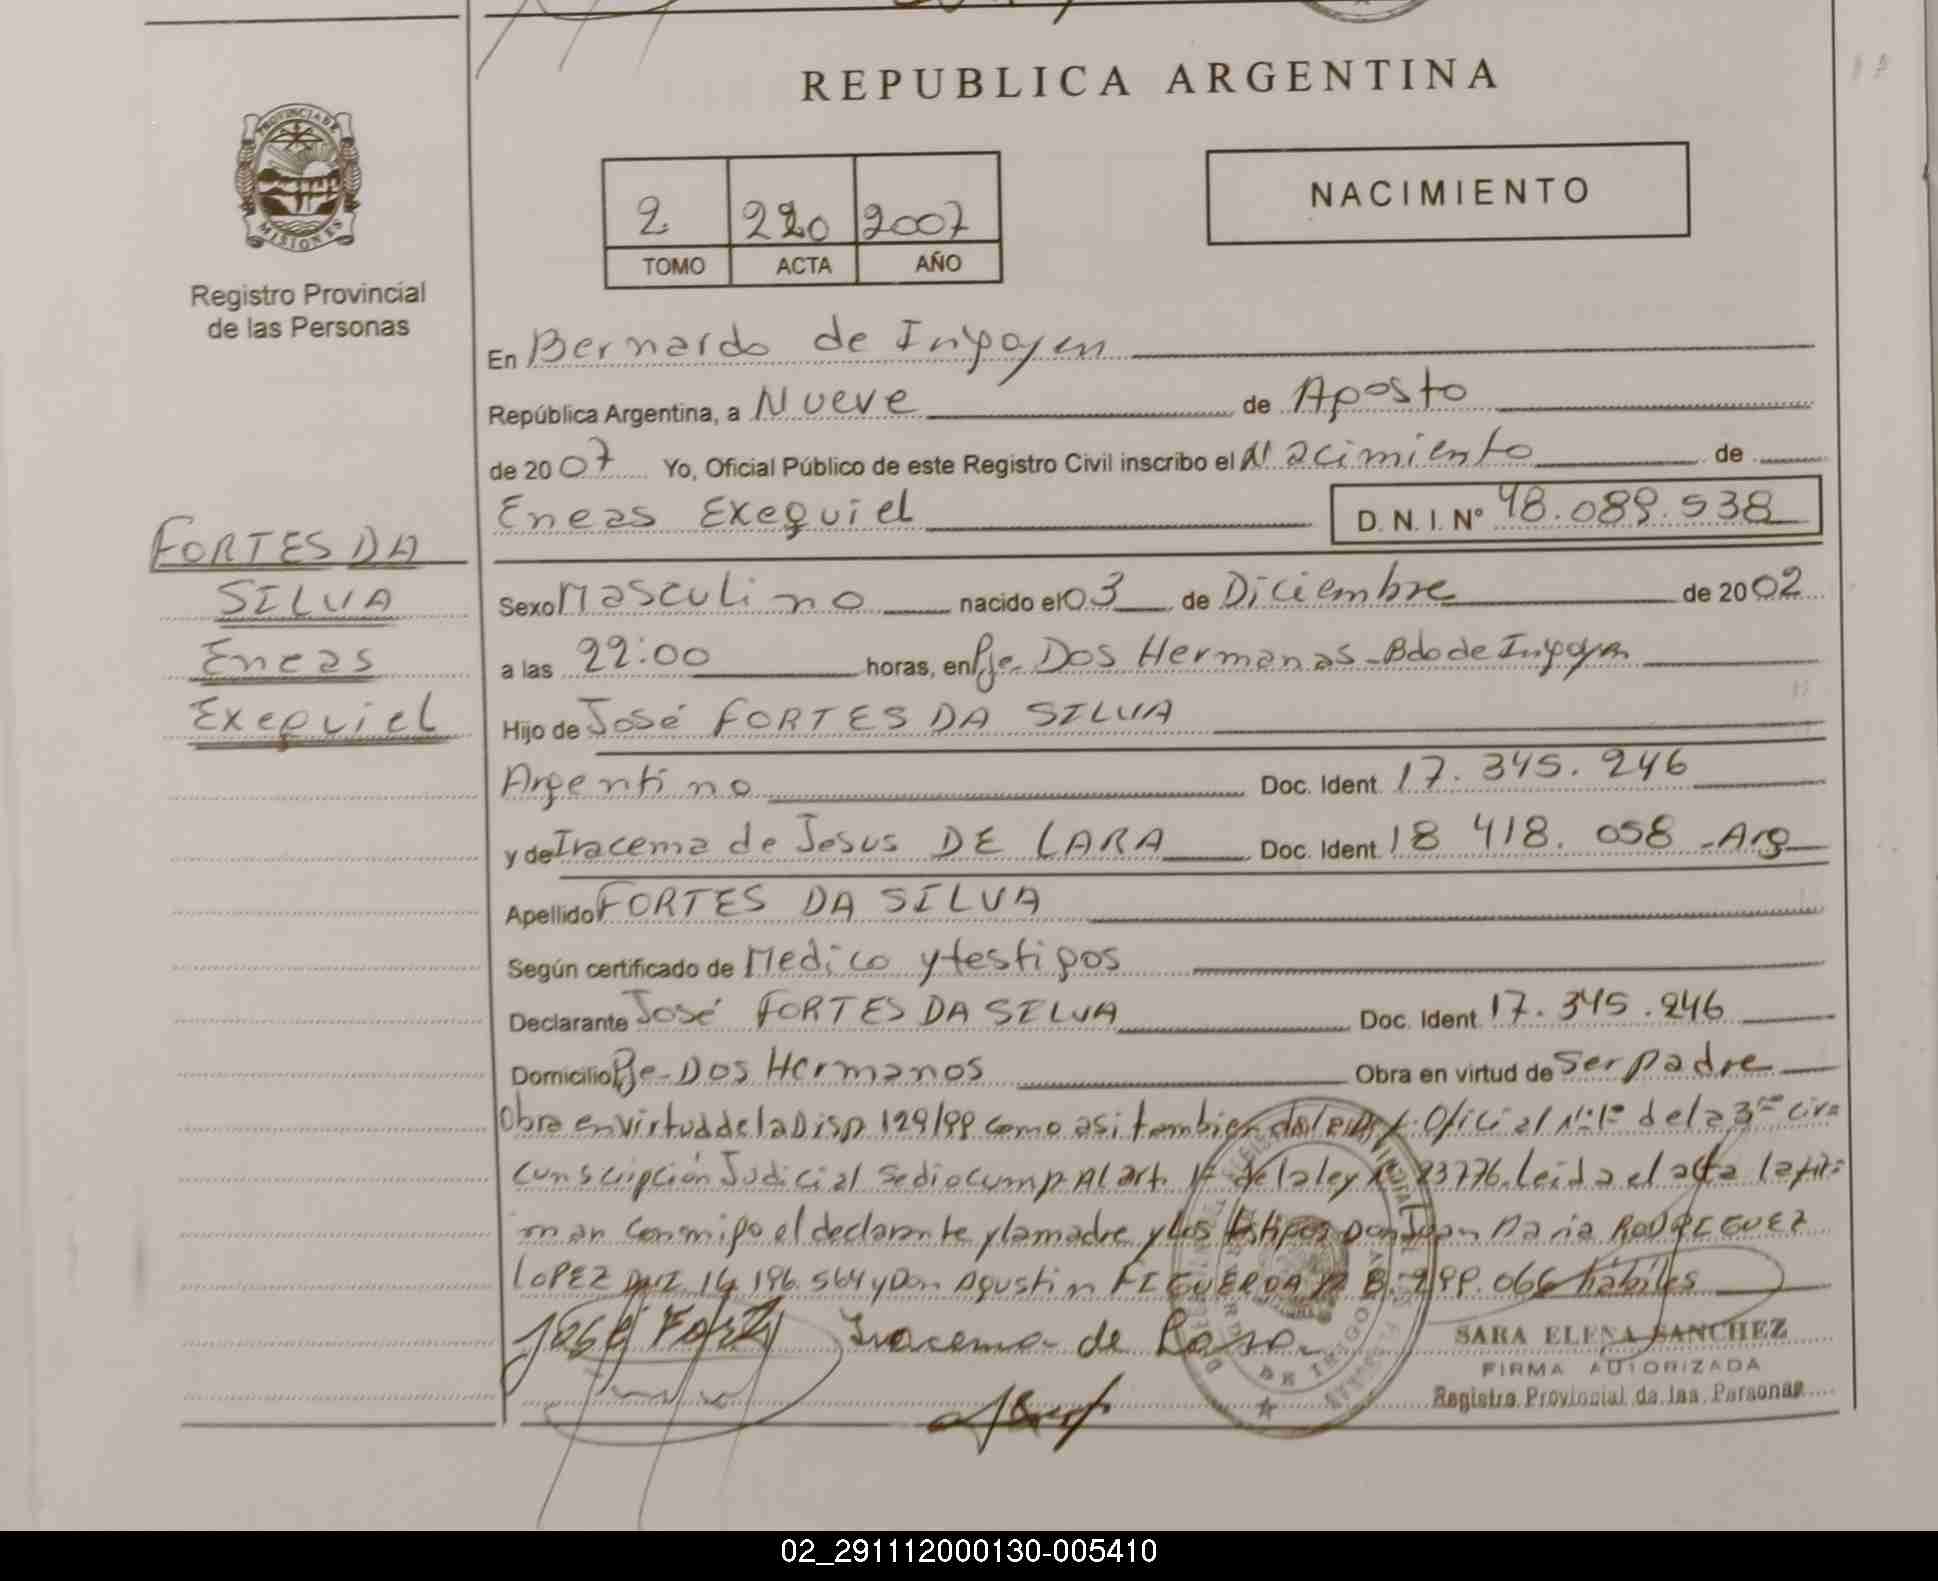 REPUBLICA ARGENTINA
PROVINCIA DE
MISIONES
Registro Provincial
de las Personas
2 220 2007
TOMO ACTA AÑO
NACIMIENTO
En Bernardo de Irigoyen
República Argentina, a Nueve de Agosto
de 2007 Yo, Oficial Público de este Registro Civil inscribo el Nacimiento de
Eneas Exequiel D. N. I. Nº 48.089.538
FORTES DA
SILVA
Eneas
Exequiel
Sexo Masculino nacido el 03 de Diciembre de 2002
a las 22:00 horas, en Pje. Dos Hermanas - Bdo de Irigoyen
Hijo de José FORTES DA SILVA
Argentino Doc. Ident. 17.345.246
y de Iracema de Jesus DE LARA Doc. Ident. 18 418.058 - Arg
Apellido FORTES DA SILVA
Según certificado de Medico y testigos
Declarante José FORTES DA SILVA Doc. Ident. 17.345.246
Domicilio Pje - Dos Hermanos Obra en virtud de Ser padre
Obra en virtud de la Disp 129/99 como asi tambien Oficial Nº 1º de la 3ra Cir
cunscripción Judicial se dio cump Al art. 1º de la ley Nº 23776. Leida el acta la fir
man conmigo el declarante y la madre y los testigos Don Juan Maria RODRIGUEZ
LOPEZ DNI 14 196.564 y Don Agustin FIGUEROA 8.299.066 hábiles
José Iracema de
SARA ELENA SANCHEZ
FIRMA AUTORIZADA
Registro Provincial de las Personas
02_291112000130-005410